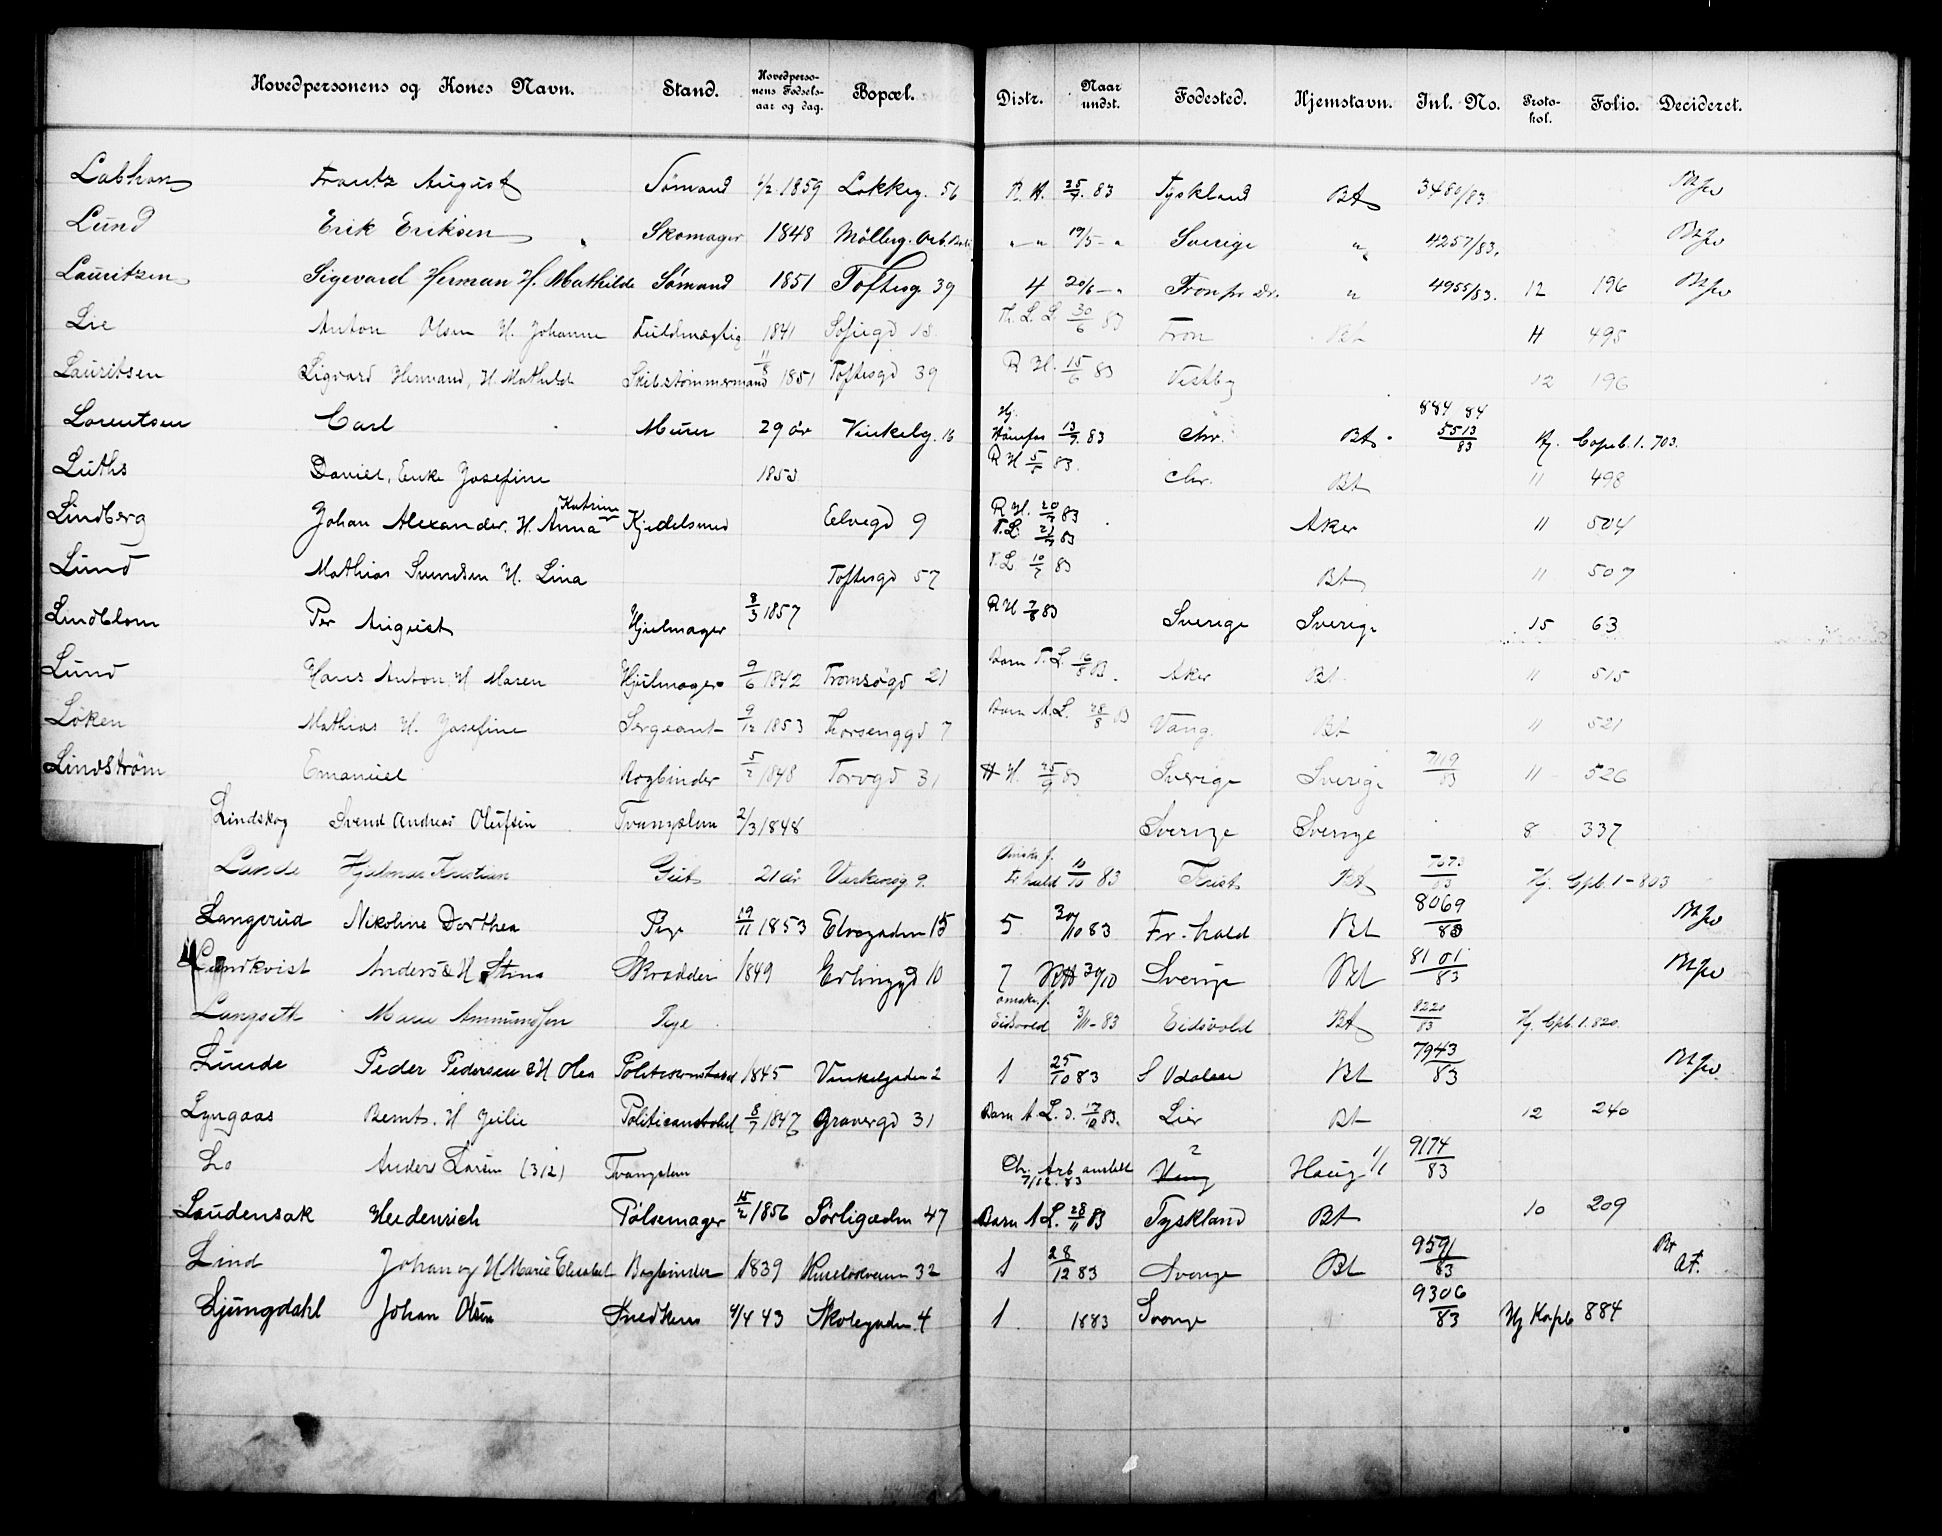 Hovedpersonens og Kones Navn. Stand. Hovedpersonens Fødselsaar og dag. Bopæl. Distr. Naar undst. Fødested. Hjemstavn. Inl. No. Protokol. Folio. Decideret.
Frantz August Sømand 1/2 1859 Lakkeg. 56 R. H. 83 Tyskland Bt 3480/83
Lund Erik Eriksen Skomager 1848 Møllerg. 19/5 Sverige " 4257/83.
Lauritzen Sigevard Herman H. Mathilde Sømand 1851 Toftesg 39 4 20/6 " 4955/83. 12 196
Lie Anton Olsen H. Johanne Fuldmægtig 1841 Sofiegd 18 30/6 83 Tron Bt 11 495
Lauritsen Sigvard Hermand, H. Mathilde Skibstømmermand 1851 Toftesgd 39 R H. 15/6 83 Vestby 12 196
Lorentsen Carl Murer 29 år Vinkelg. 16 13/9 83 Chr. Bt. 884 84 5513/83 Hj. Copib. 1. 703.
Luths Daniel, Enke Josefine 1853 R H 83. Chr. Bt 11 498
Lindberg Johan Alexander. H. Anna Katrine Kjedelsmed Elvegd 9 R H. 83 T. L. 83 Aker 11 504
Lund Mathias Svendsen H. Lina Toftesgd 57 T. L 10/7 83 Bt 11 507
Lindblom Per August Hjulmager 8/3 1857 R H 83 Sverige Sverige 15 63
Lund Hans Anton, H Maren Hjulmager 9/6 1842 Tromsøgd 21 Barn T. L. 16/8 83. Aker Bt. 11 515
Løken Mathias H. Josefine Sergeant 9/12 1853 Thorsenggd 7 Barn A L. 28/8 83 Vang. Bt 11 521
Lindstrøm Emanuel Bogbinder 5/2 1848 Torvgd 31 H. 25/9 83 Sverige Sverige 7119/83 11 526
Lindskog Svend Andreas Olufsen Tvangslem 2/3 1848 Sverige Sverige 8 337
Lunde Hjalmar Kristian Gut 21 år 10/10 83 Bt Hj. Cpb. 1 - 803
Langerud Nikoline Dorthea Pige 19/11 1853 Elvegaden 15 5 30/10 83 Fr. hald Bt 8069/83
Lundkvist Anders & H Stina Skrædder 1849 Erlinggd 10 7 RH 30/10 Sverige Bt 8101/83
Langseth Marie Ammundsen Pige Eidsvold 83 Eidsvold Bt 8220/83 Hj. Cpb. 1. 820.
Lunde Peder Pedersen & H Olea Politikonstabel 1845 Vinkelgaden 2 1 25/10 83 S Odalen Bt 7943/83
Lyngaas Bernt. H Julie Politikonstabel 8/7 1847 Gravergd 31 Barn A L. 83. Lier Bt 12 240
Lo Anders Larsen (312) Tvangslem Chr. Arb. anstalt 7/12. 83 Haug 9174/83
Laudensak Heidenrich Pølsemager 15/2 1856 Sørligaden 47 Barn A L. 28/11 83 Tyskland Bt 10 209
Lind Johan og H Marie Elisabet Bogbinder 1839 32 1 28/12 83 Sverige Bt 9591/83
Ljungdahl Johan Olsen Snedker 4/4 43 Skolegaden 4 1 1883 Sverige 9306/83 Hj Kopb 884